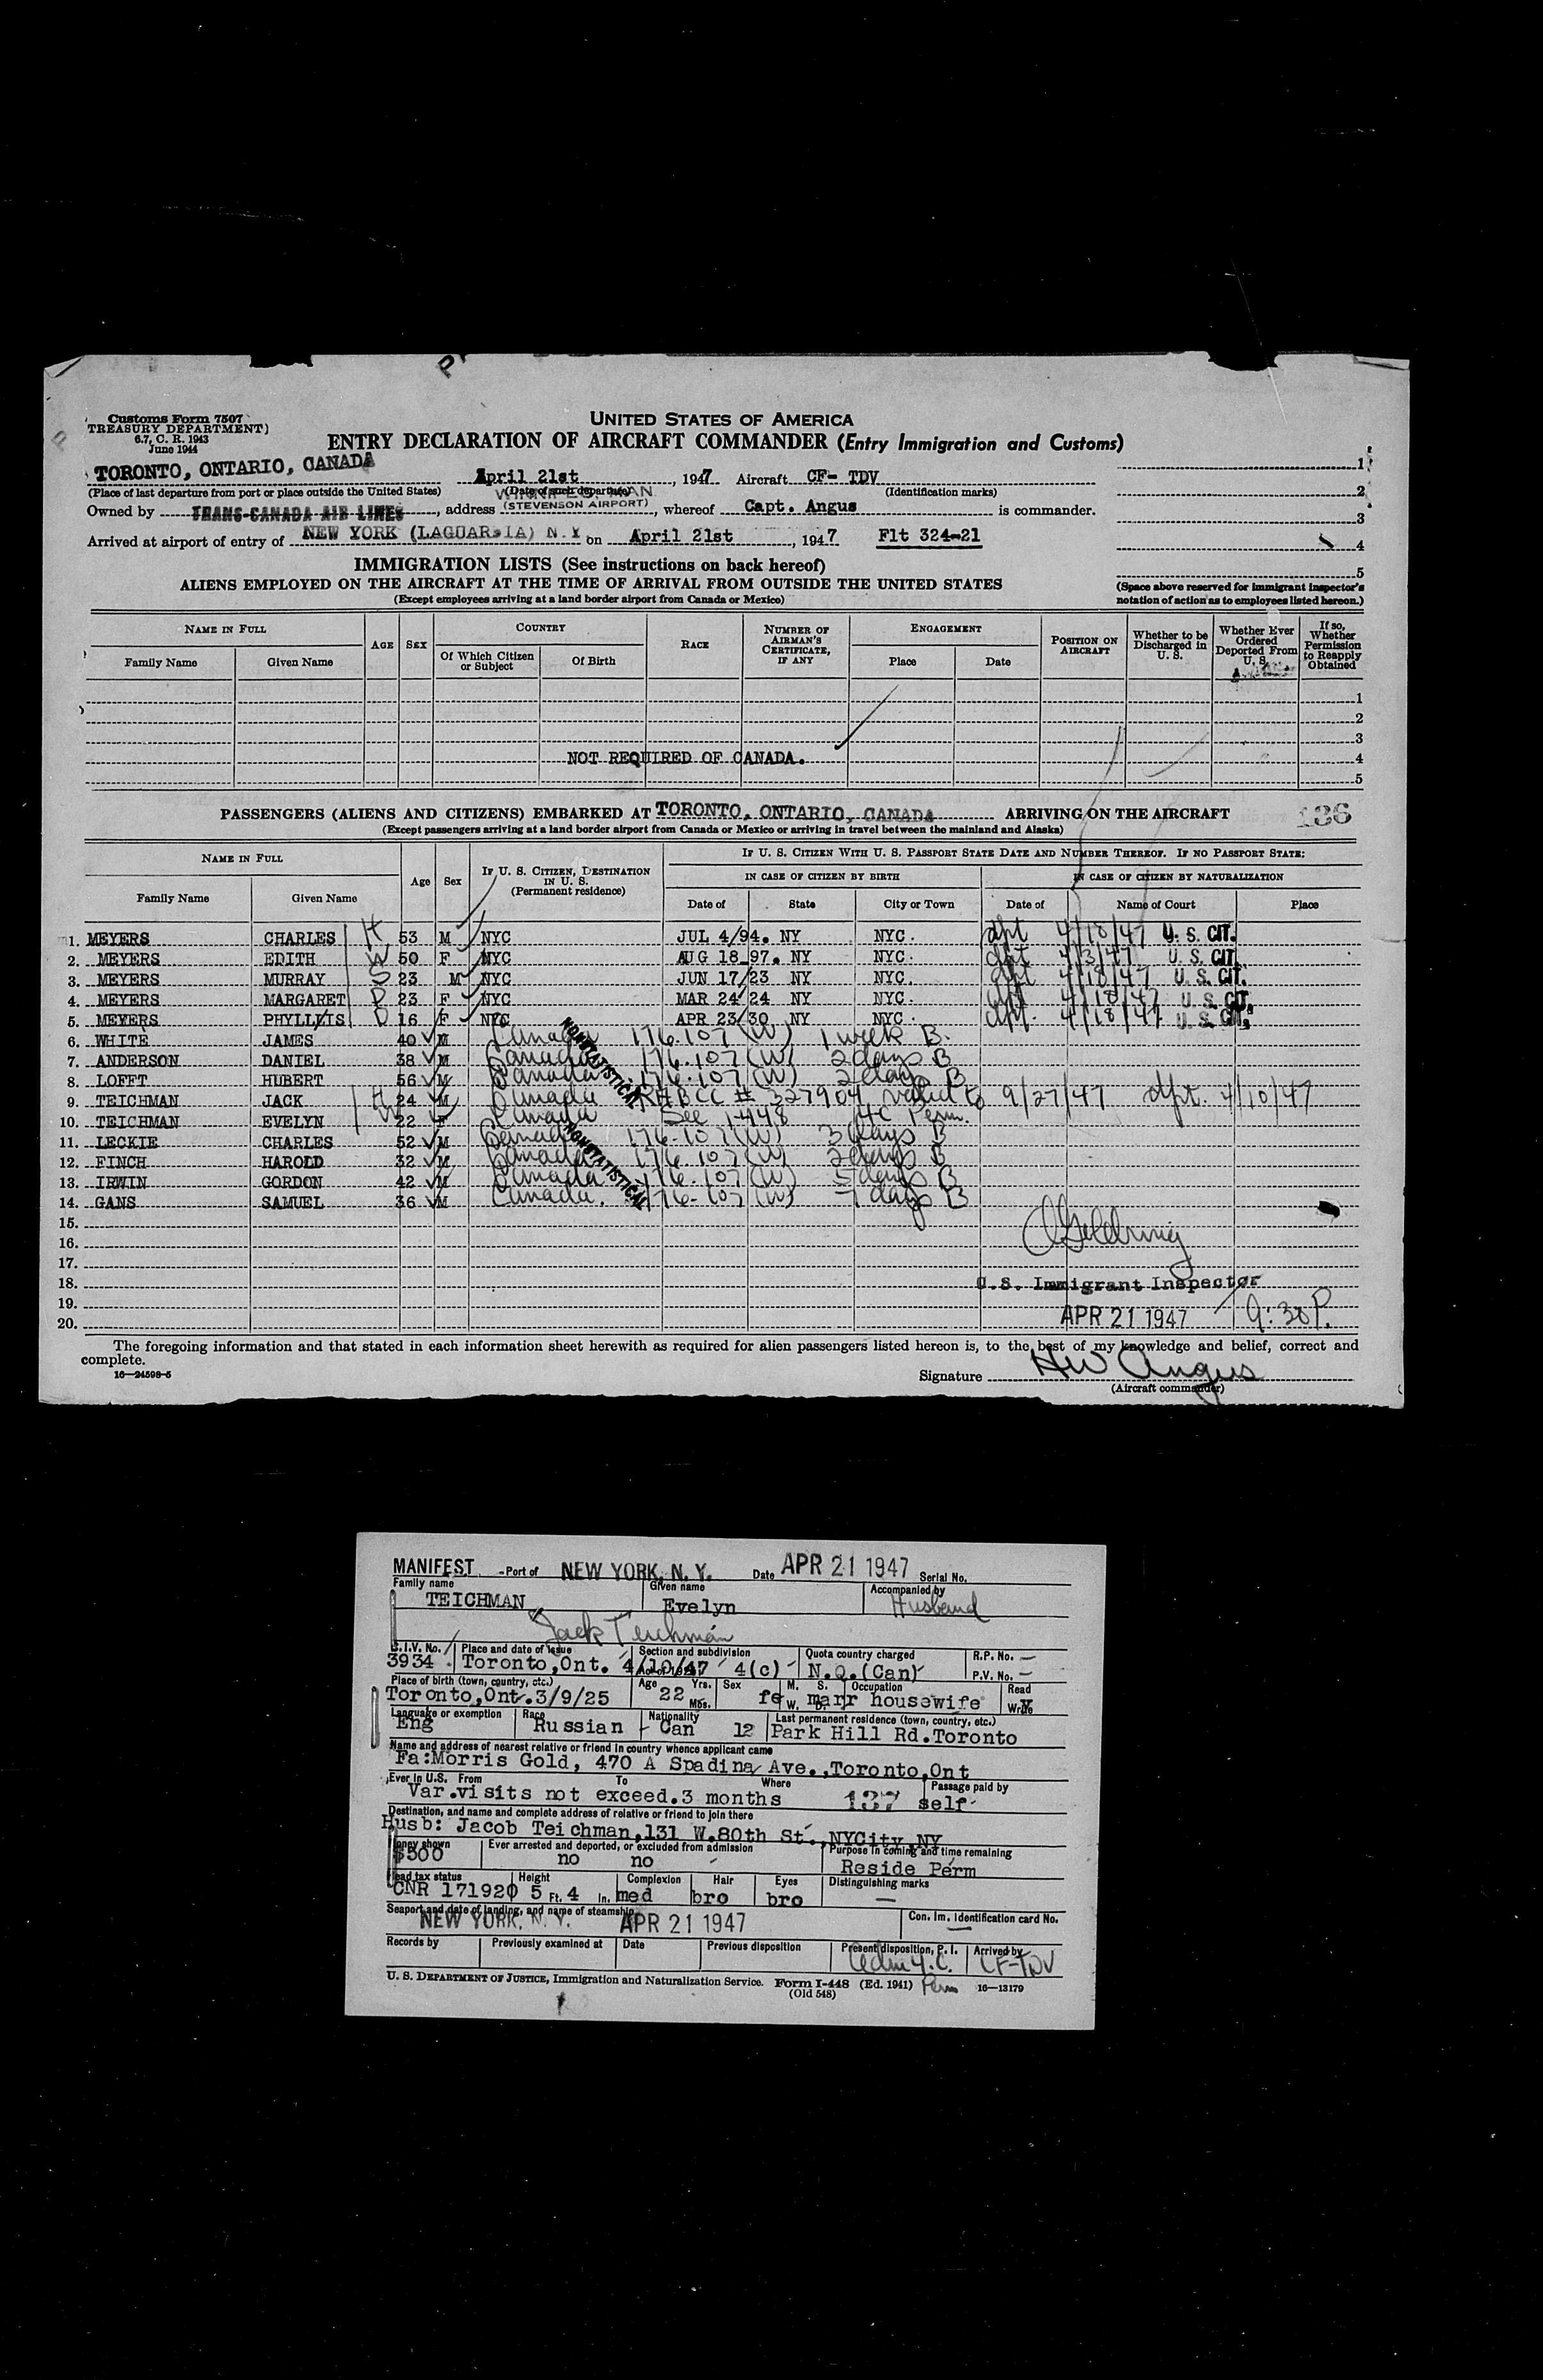 Customs Form 7507
TREASURY DEPARTMENT)
6.7, C. R. 1943
June 1944
UNITED STATES OF AMERICA
ENTRY DECLARATION OF AIRCRAFT COMMANDER (Entry Immigration and Customs)
TORONTO, ONTARIO, CANADA April 21st, 1947 Aircraft CF- TDV 1
(Place of last departure from port or place outside the United States) (Date of such departure) (Identification marks) 2
Owned by TRANS-CANADA AIR LINES, address (STEVENSON AIRPORT), whereof Capt. Angus is commander. 3
Arrived at airport of entry of NEW YORK (LAGUARDIA) N.Y on April 21st, 1947 Flt 324-21 4
5
IMMIGRATION LISTS (See instructions on back hereof)
ALIENS EMPLOYED ON THE AIRCRAFT AT THE TIME OF ARRIVAL FROM OUTSIDE THE UNITED STATES
(Except employees arriving at a land border airport from Canada or Mexico)
(Space above reserved for immigrant inspector's notation of action as to employees listed hereon.)
NAME IN FULL AGE SEX COUNTRY RACE NUMBER OF AIRMAN'S CERTIFICATE, IF ANY ENGAGEMENT POSITION ON AIRCRAFT Whether to be Discharged in U. S. Whether Ever Ordered Deported From U. S. If so, Whether Permission to Reapply Obtained
Family Name Given Name Of Which Citizen or Subject Of Birth Place Date
1
2
3
NOT REQUIRED OF CANADA. 4
5
PASSENGERS (ALIENS AND CITIZENS) EMBARKED AT TORONTO, ONTARIO, CANADA ARRIVING ON THE AIRCRAFT 136
(Except passengers arriving at a land border airport from Canada or Mexico or arriving in travel between the mainland and Alaska)
NAME IN FULL Age Sex IF U. S. CITIZEN, DESTINATION IN U. S. (Permanent residence) IF U. S. CITIZEN WITH U. S. PASSPORT STATE DATE AND NUMBER THEREOF. IF NO PASSPORT STATE:
IN CASE OF CITIZEN BY BIRTH IN CASE OF CITIZEN BY NATURALIZATION
Family Name Given Name Date of State City or Town Date of Name of Court Place
1. MEYERS CHARLES H 53 M NYC JUL 4/94. NY NYC. dpt 4/18/47 U. S. CIT.
2. MEYERS EDITH W 50 F NYC AUG 18 97. NY NYC. dpt 4/3/47 U. S. CIT.
3. MEYERS MURRAY S 23 M NYC JUN 17/23 NY NYC. dpt 4/18/47 U. S. CIT.
4. MEYERS MARGARET D 23 F NYC MAR 24 24 NY NYC. dpt 4/18/47 U. S. CIT.
5. MEYERS PHYLLIS D 16 F NYC APR 23/30 NY NYC. dpt. 4/18/47 U. S. CIT.
6. WHITE JAMES 40 M Canada 176.107 (W) 1 week B.
7. ANDERSON DANIEL 38 M Canada 176.107 (W) 2 days B
8. LOFFT HUBERT 56 M Canada 176.107 (W) 2 days B
NONSTATISTICAL
9. TEICHMAN JACK H 24 M Canada RABCC # 327904 valid to 9/27/47 dpt. 4/10/47
10. TEICHMAN EVELYN W 22 F Canada See I-448 4C Perm.
11. LECKIE CHARLES 52 M Canada 176-107 (W) 3 days B
12. FINCH HAROLD 32 M Canada 176.107 (W) 2 days B
13. IRWIN GORDON 42 M Canada 176.107 (W) 5 days B
14. GANS SAMUEL 36 M Canada. 176-107 (W) 7 days B
NONSTATISTICAL
15.
16.
17.
18. U.S. Immigrant Inspector
19. APR 21 1947 9:30 P.
20.
The foregoing information and that stated in each information sheet herewith as required for alien passengers listed hereon is, to the best of my knowledge and belief, correct and
complete.
16—24598-5
Signature HW Angus
(Aircraft commander)
MANIFEST - Port of NEW YORK, N. Y. Date APR 21 1947 Serial No.
Family name Given name Accompanied by
TEICHMAN Evelyn Husband
Jack Teichman
S.I.V. No. Place and date of issue Section and subdivision Quota country charged R.P. No. —
3934 Toronto, Ont. 4/10/47 4(c) N.Q.(Can) P.V. No. —
Place of birth (town, country, etc.) Age Yrs. Mos. Sex M. S. W. D. Occupation Read Write
Toronto, Ont. 3/9/25 22 fe marr housewife
Language or exemption Race Nationality Last permanent residence (town, country, etc.)
Eng Russian Can 12 Park Hill Rd. Toronto
Name and address of nearest relative or friend in country whence applicant came
Fa: Morris Gold, 470 A Spadina Ave., Toronto, Ont
Ever in U.S. From To Where Passage paid by
Var. visits not exceed. 3 months 137 self
Destination, and name and complete address of relative or friend to join there
Husb: Jacob Teichman, 131 W. 80th St., NYCity, NY
Money shown Ever arrested and deported, or excluded from admission Purpose in coming and time remaining
$500 no no Reside Perm
Head tax status Height Complexion Hair Eyes Distinguishing marks
CNR 171920 5 Ft. 4 In. med bro bro —
Seaport and date of landing, and name of steamship Con. Im. Identification card No.
NEW YORK, N. Y. APR 21 1947 —
Records by Previously examined at Date Previous disposition Present disposition, P. I. Arrived by
Adm 4.C. CF-TDV
U. S. DEPARTMENT OF JUSTICE, Immigration and Naturalization Service. Form I-448 (Ed. 1941) Perm 16—13179
(Old 548)